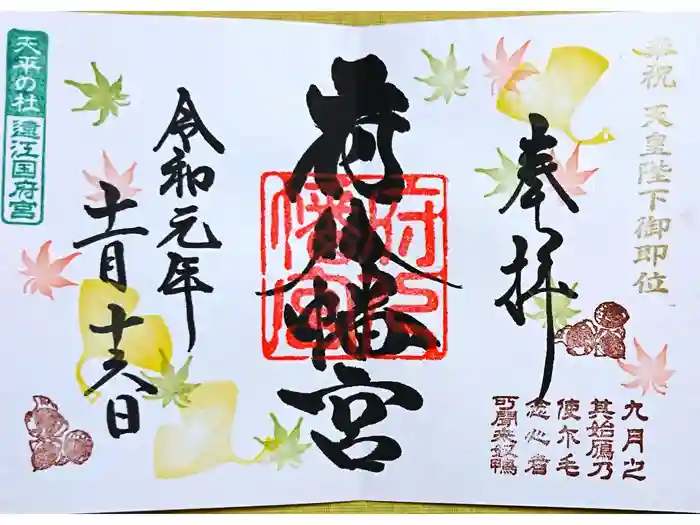 奉祝 天皇陛下御即位
奉拝
九月之
其始鴈乃
使尓毛
念心者
可聞来奴鴨
府八幡宮
府八幡宮
令和元年
十一月十六日
天平の杜
遠江国府宮